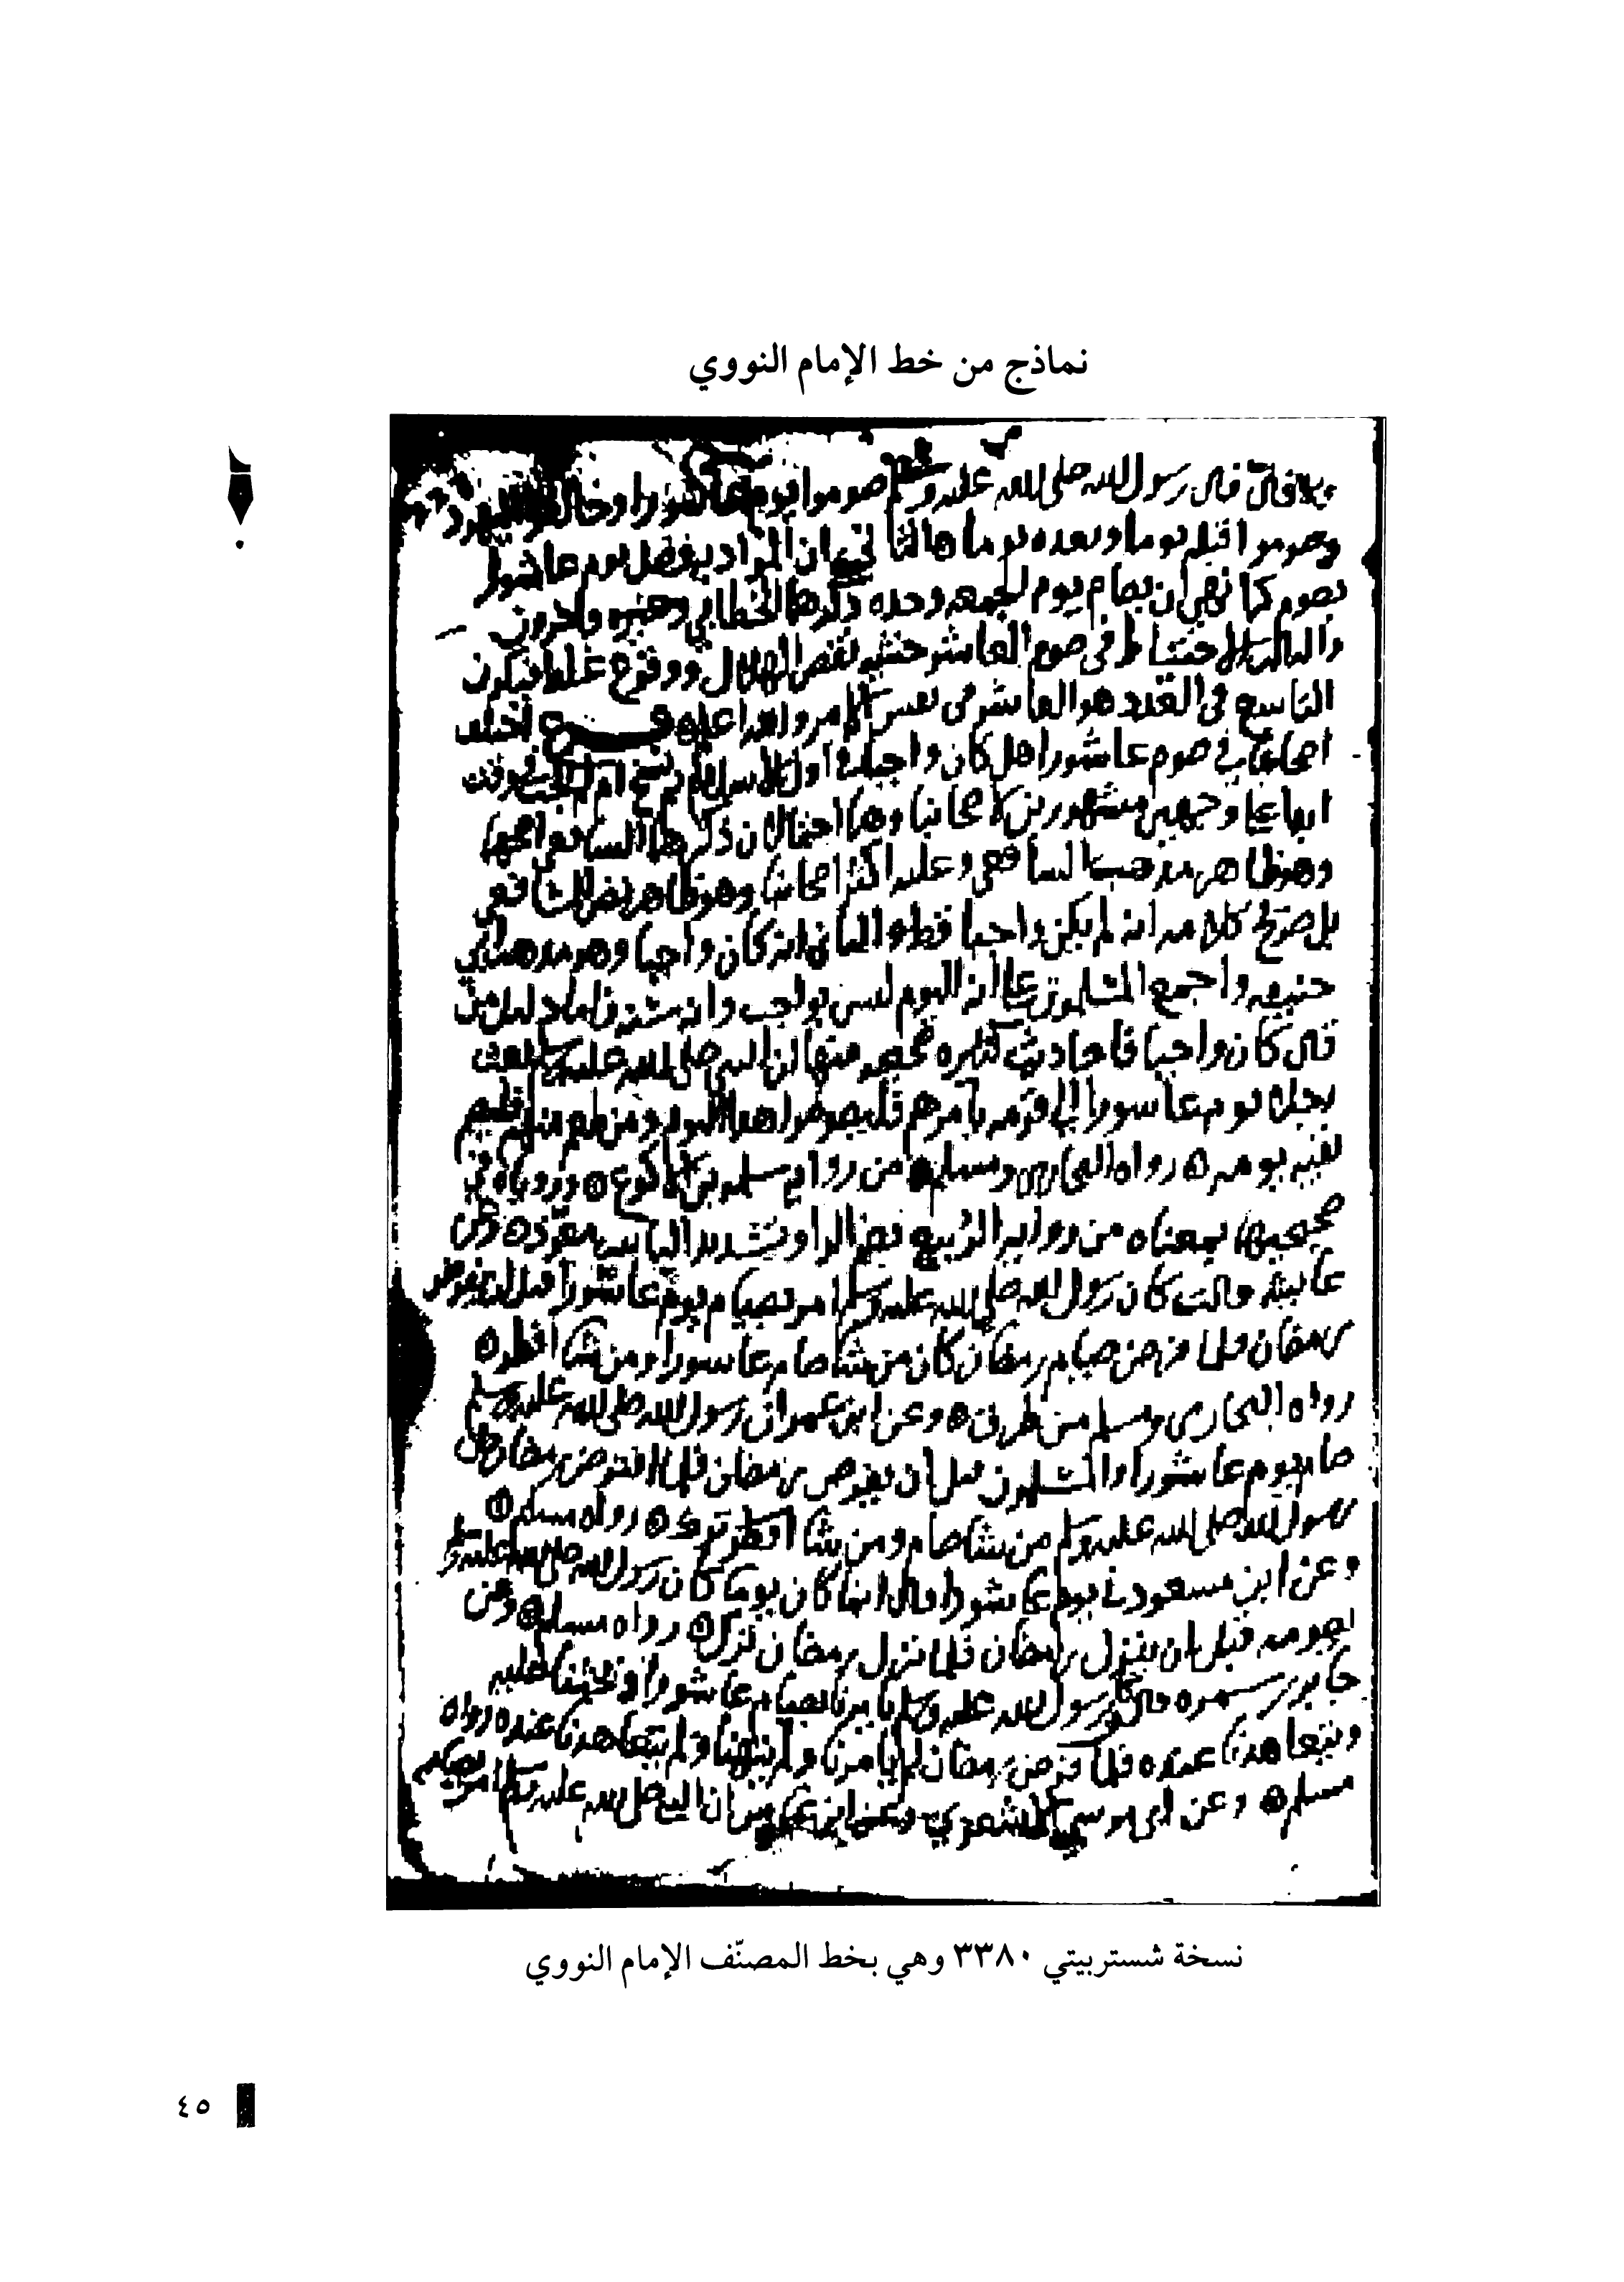 نماذج من خط الإمام النووي
قال قال رسول الله صلى الله عليه وسلم صوموا يوم عاشورا وخالفوا اليهود
وصوموا قبله يوما وبعده يوما الثاني ان المراد به فصل يوم عاشورا
بصوم كما نهى ان يصام يوم الجمعة وحده ذكرهما الخطابي واخرون
والثالث الاحتياط في صوم العاشر خشية نقص الهلال ووقوع غلط فيكون
التاسع في العدد هو العاشر في نفس الامر والله اعلم فرع اختلف
اصحابنا في صوم عاشورا هل كان واجبا في اول الاسلام ثم نسخ ام لم يجب في وقت
ابدا على وجهين مشهورين لاصحابنا وهما احتمالان ذكرهما الشافعي اصحهما
وهو ظاهر مذهب الشافعي وعليه اكثر اصحابنا وهو ظاهر نص الشافعي
بل صريح كلامه انه لم يكن واجبا قط والثاني انه كان واجبا وهو مذهب ابي
حنيفه واجمع المسلمون على انه اليوم ليس بواجب وانه سنه فاما دليل من
قال كان واجبا فاحاديث كثيره صحيحه منها ان النبي صلى الله عليه وسلم بعث
رجلا يوم عاشورا الى قومه يامرهم فليصوموا هذا اليوم ومن طعم منهم فليصم
بقيه يومه رواه البخاري ومسلم من روايه سلمه بن الاكوع وروياه في
صحيحيهما بمعناه من روايه الربيع بضم الرا وتشديد اليا بنت معوذ وعن
عايشه قالت كان رسول الله صلى الله عليه وسلم امر بصيام يوم عاشورا قبل ان يفرض
رمضان فلما فرض صيام رمضان كان من شا صام عاشورا ومن شا افطر
رواه البخاري ومسلم من طرق وعن ابن عمر ان رسول الله صلى الله عليه وسلم
صام يوم عاشورا والمسلمون قبل ان يفرض رمضان فلما افترض رمضان قال
رسول الله صلى الله عليه وسلم من شا صام ومن شا افطر تركه رواه مسلم
وعن ابن مسعود في يوم عاشورا قال انما كان يوما كان رسول الله صلى الله عليه وسلم
يصومه قبل ان ينزل رمضان فلما نزل رمضان ترك رواه مسلم وعن
جابر بن سمره قال كان رسول الله صلى الله عليه وسلم يامرنا بصيام عاشورا ويحثنا عليه
ويتعاهدنا عنده فلما فرض رمضان لم يامرنا ولم ينهنا ولم يتعاهدنا عنده رواه
مسلم وعن ابي موسى الاشعري وعن ابن عباس ان النبي صلى الله عليه وسلم امر بصيام
نسخة شستربيتي ٣٣٨٠ وهي بخط المصنّف الإمام النووي
٤٥